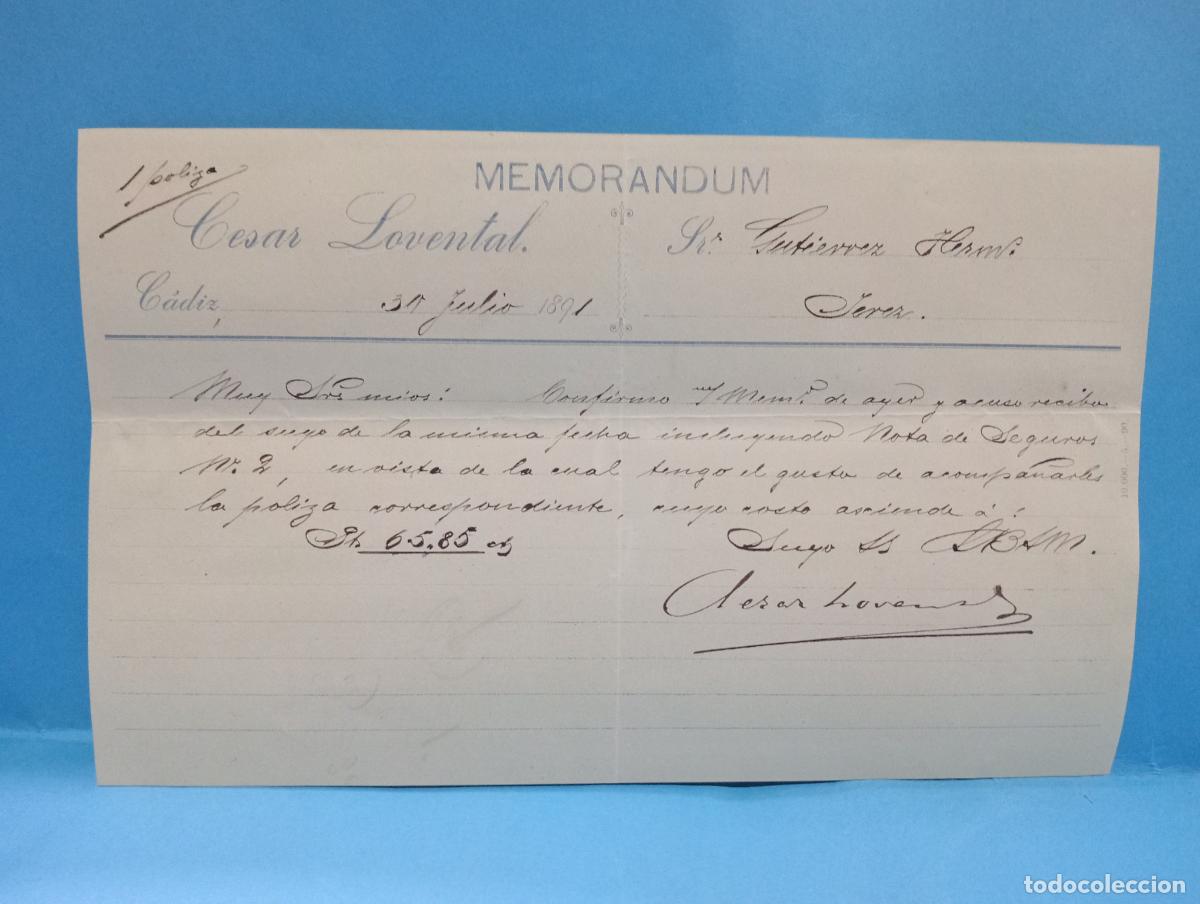 1 poliza
MEMORANDUM
Cesar Lovental.
Sr. Gutierrez Herms.
Cádiz, Julio 1891
Jerez.
Muy Srs mios: Confirmo m/ Memm. de ayer y acuso recibo
del suyo de la misma fecha incluyendo Nota de Seguros
No. 2, en vista de la cual tengo el gusto de acompañarles
la poliza correspondiente, cuyo costo asciende á:
Pts 65,85 cts
Suyo SS QBSM.
Cesar Lovental
10.000.-5.-90
todocoleccion